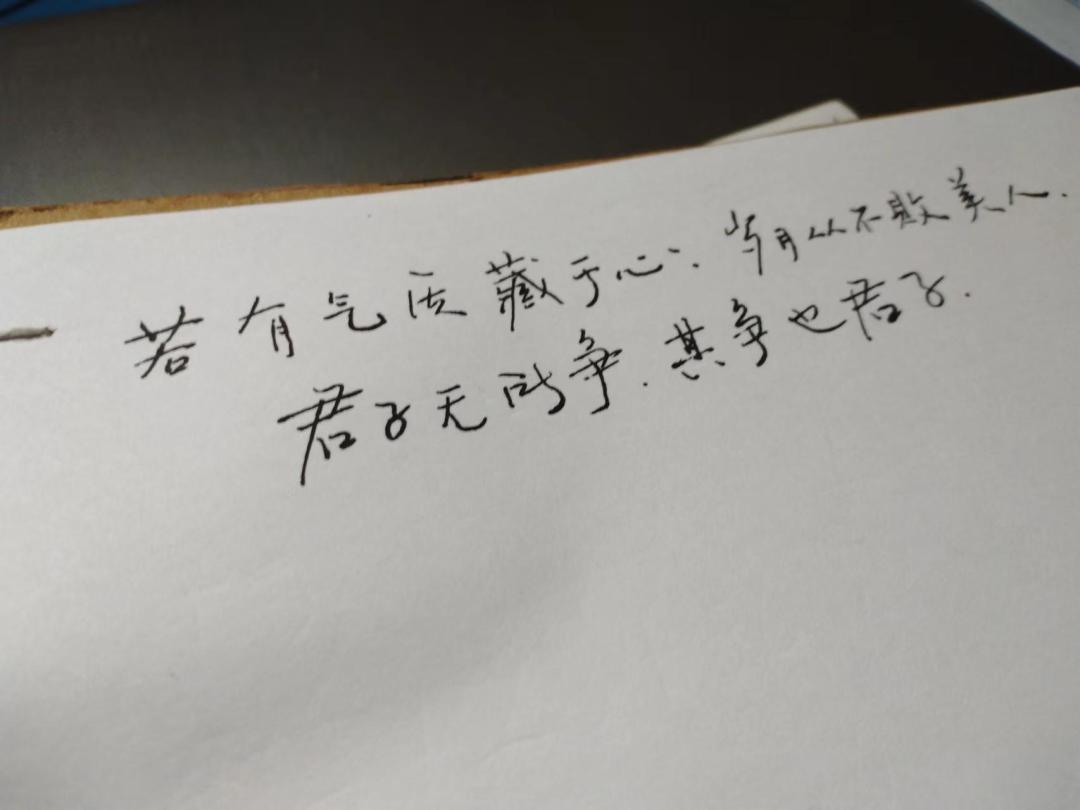 若有气质藏于心，岁月从不败美人.
君子无所争.其争也君子.